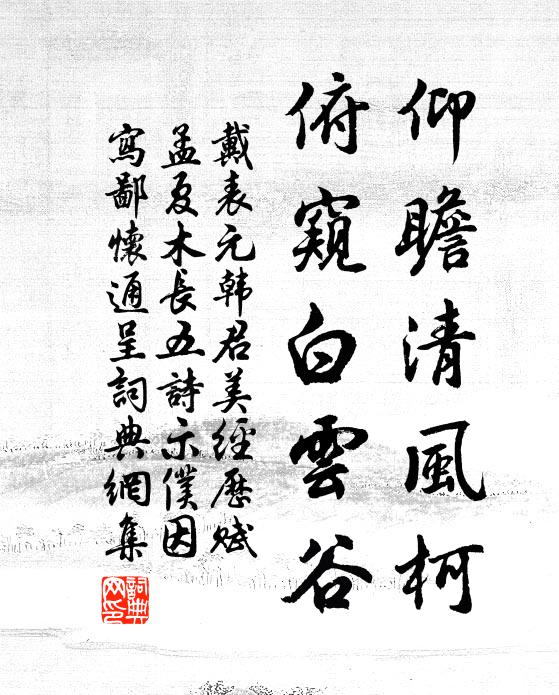 仰瞻清風柯
俯窺白雲谷
戴表元韓君美經歷賦
孟夏木長五詩示僕因
寫鄙懷通呈詞典網集
詞典網印